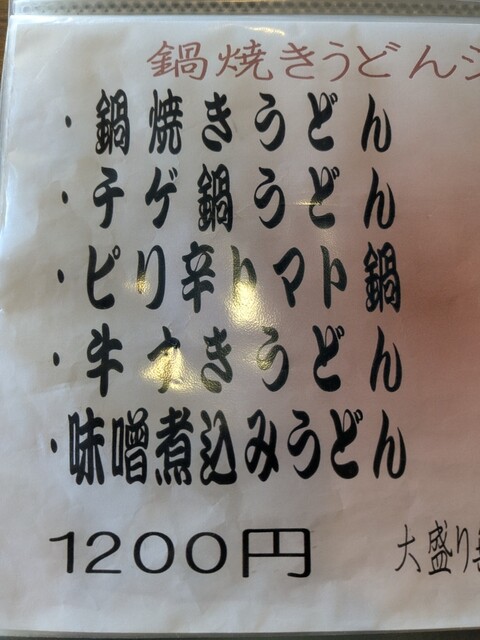 鍋焼きうどんシ
・鍋焼きうどん
・チゲ鍋うどん
・ピリ辛トマト鍋
・牛すきうどん
・味噌煮込みうどん
1200円
大盛り